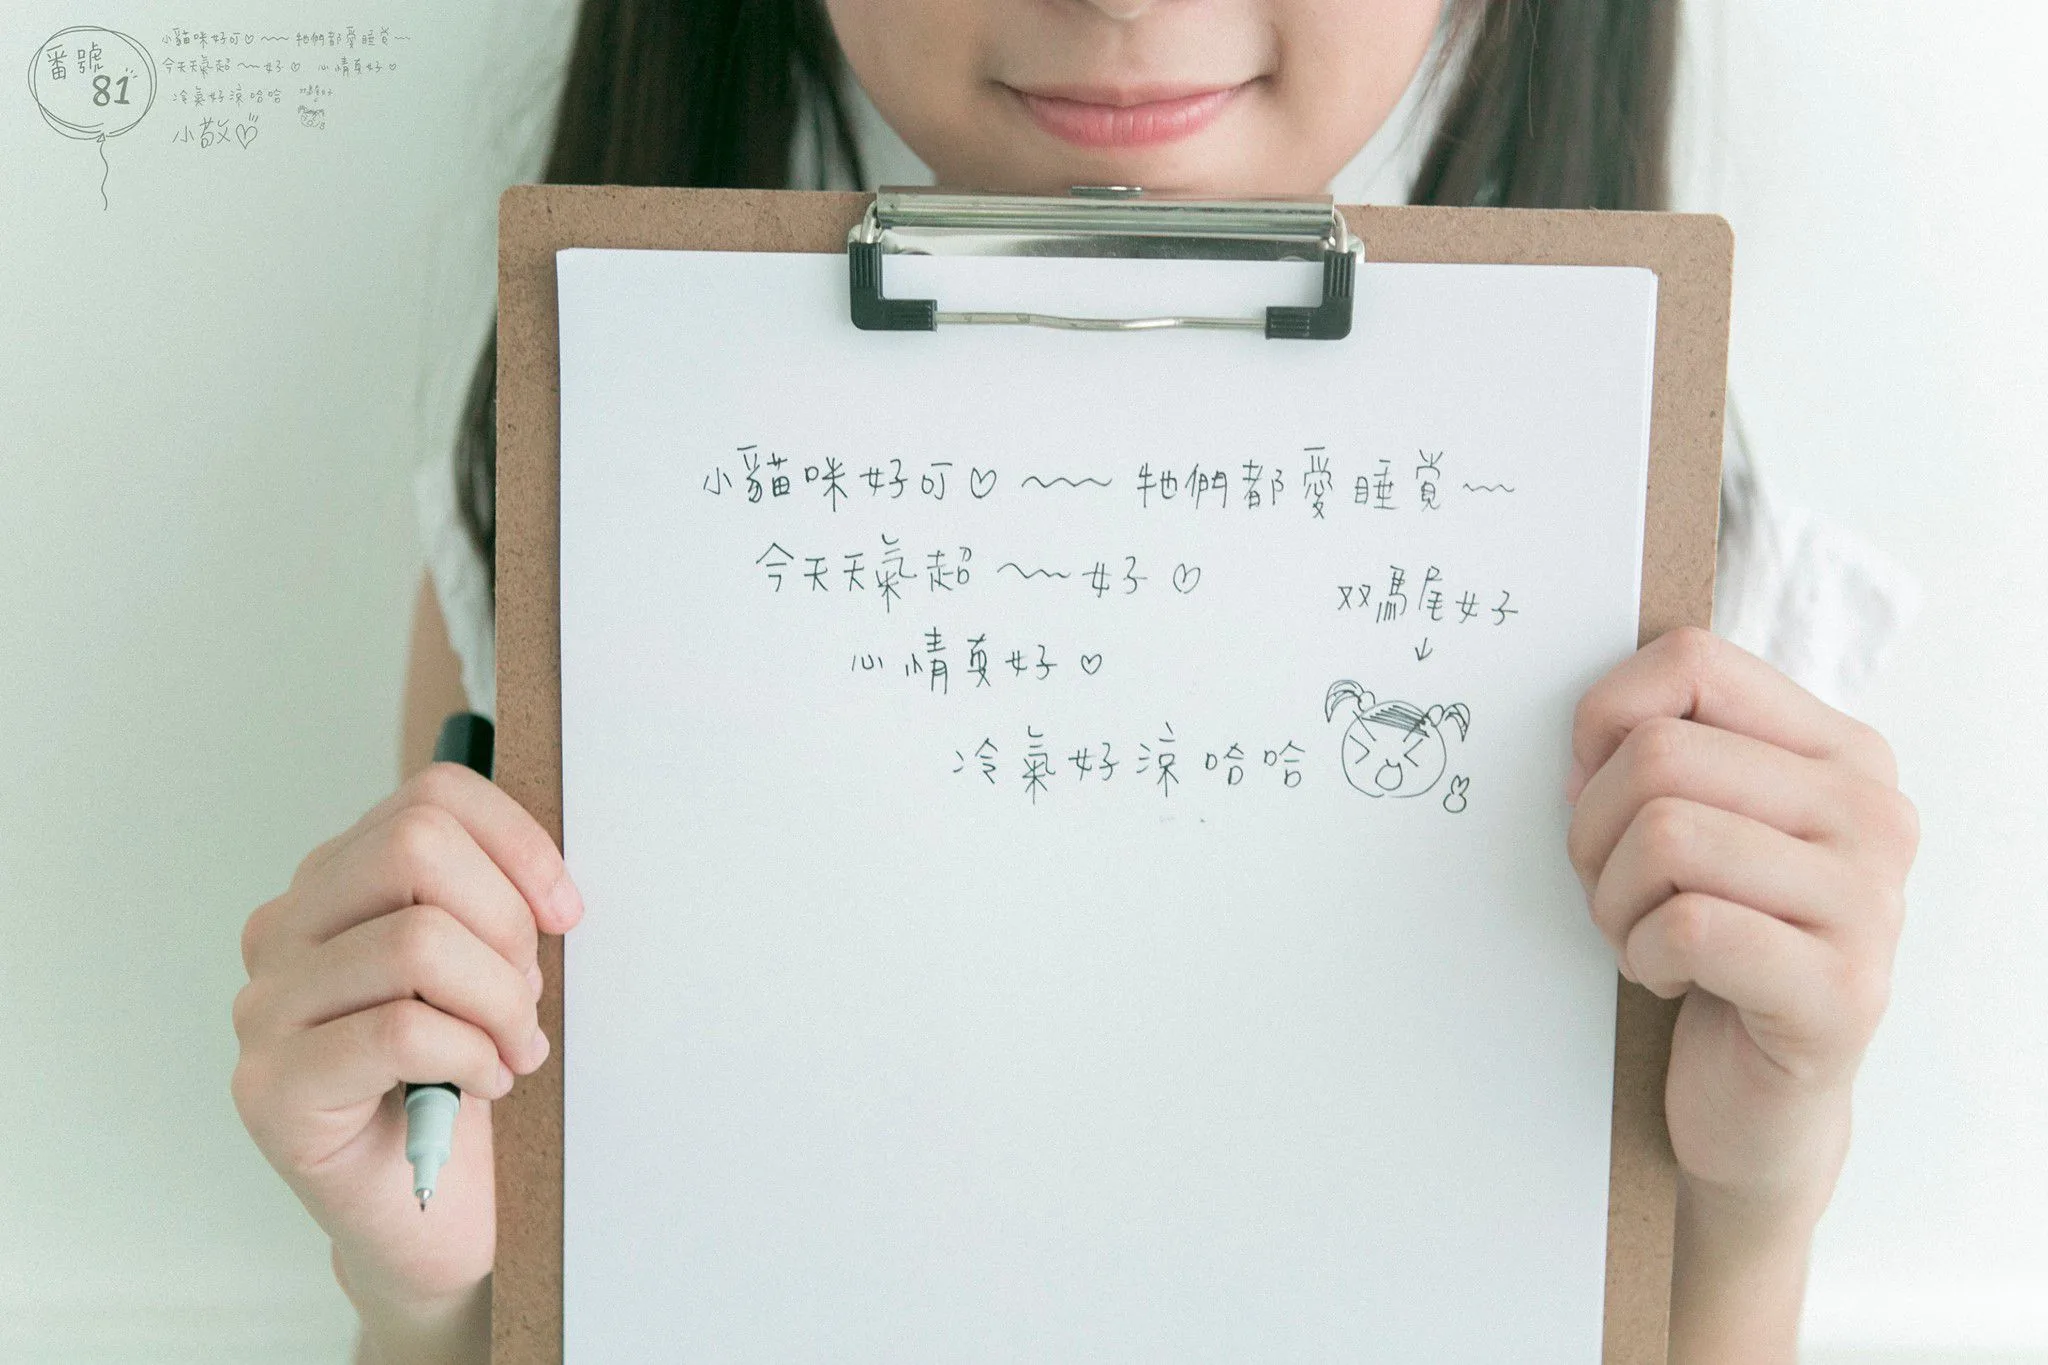 番號
81
小貓咪好可♡~~~牠們都愛睡覺~~
今天天氣超~~~好♡ 心情真好♡
冷氣好涼哈哈 双馬尾女子
小敬♡
小貓咪好可♡~~~牠們都愛睡覺~~
今天天氣超~~~好♡
双馬尾女子
↓
心情真好♡
冷氣好涼哈哈